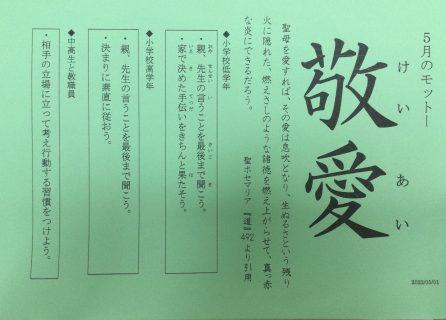 5月のモットー
けいあい
敬愛
聖母を愛すれば、その愛は息吹となり、生ぬるさという残り
火に隠れた、燃えさしのような諸徳を燃え上がらせて、真っ赤
な炎にできるだろう。
聖ホセマリア『道』492より引用
◆小学校低学年
・親、先生の言うことを最後まで聞こう。
・家で決めた手伝いをきちんと果たそう。
◆小学校高学年
・親、先生の言うことを最後まで聞こう。
・決まりに素直に従おう。
◆中高生と教職員
・相手の立場に立って考え行動する習慣をつけよう。
2022/05/01